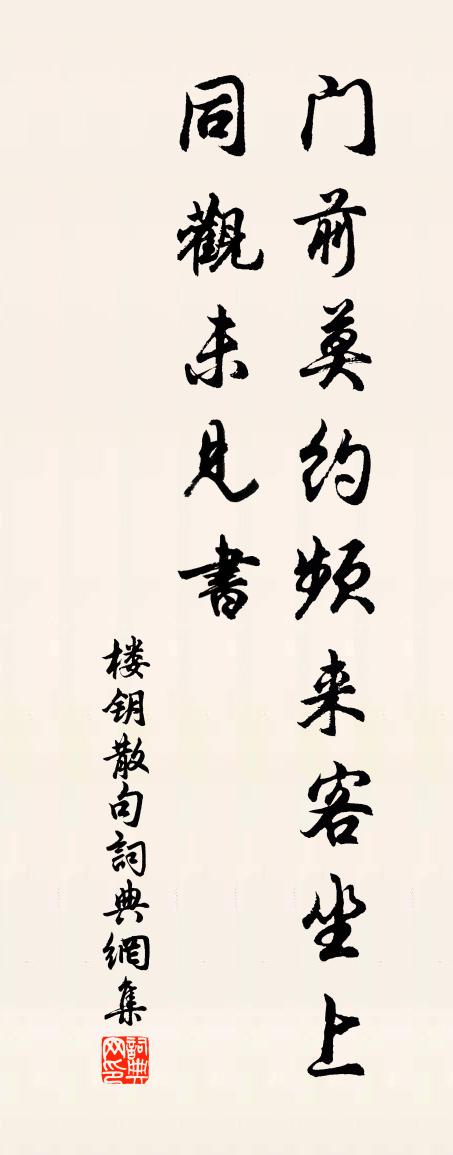 门前莫约频来客坐上
同觀未見書
楼钥散句詞典網集
詞典网印